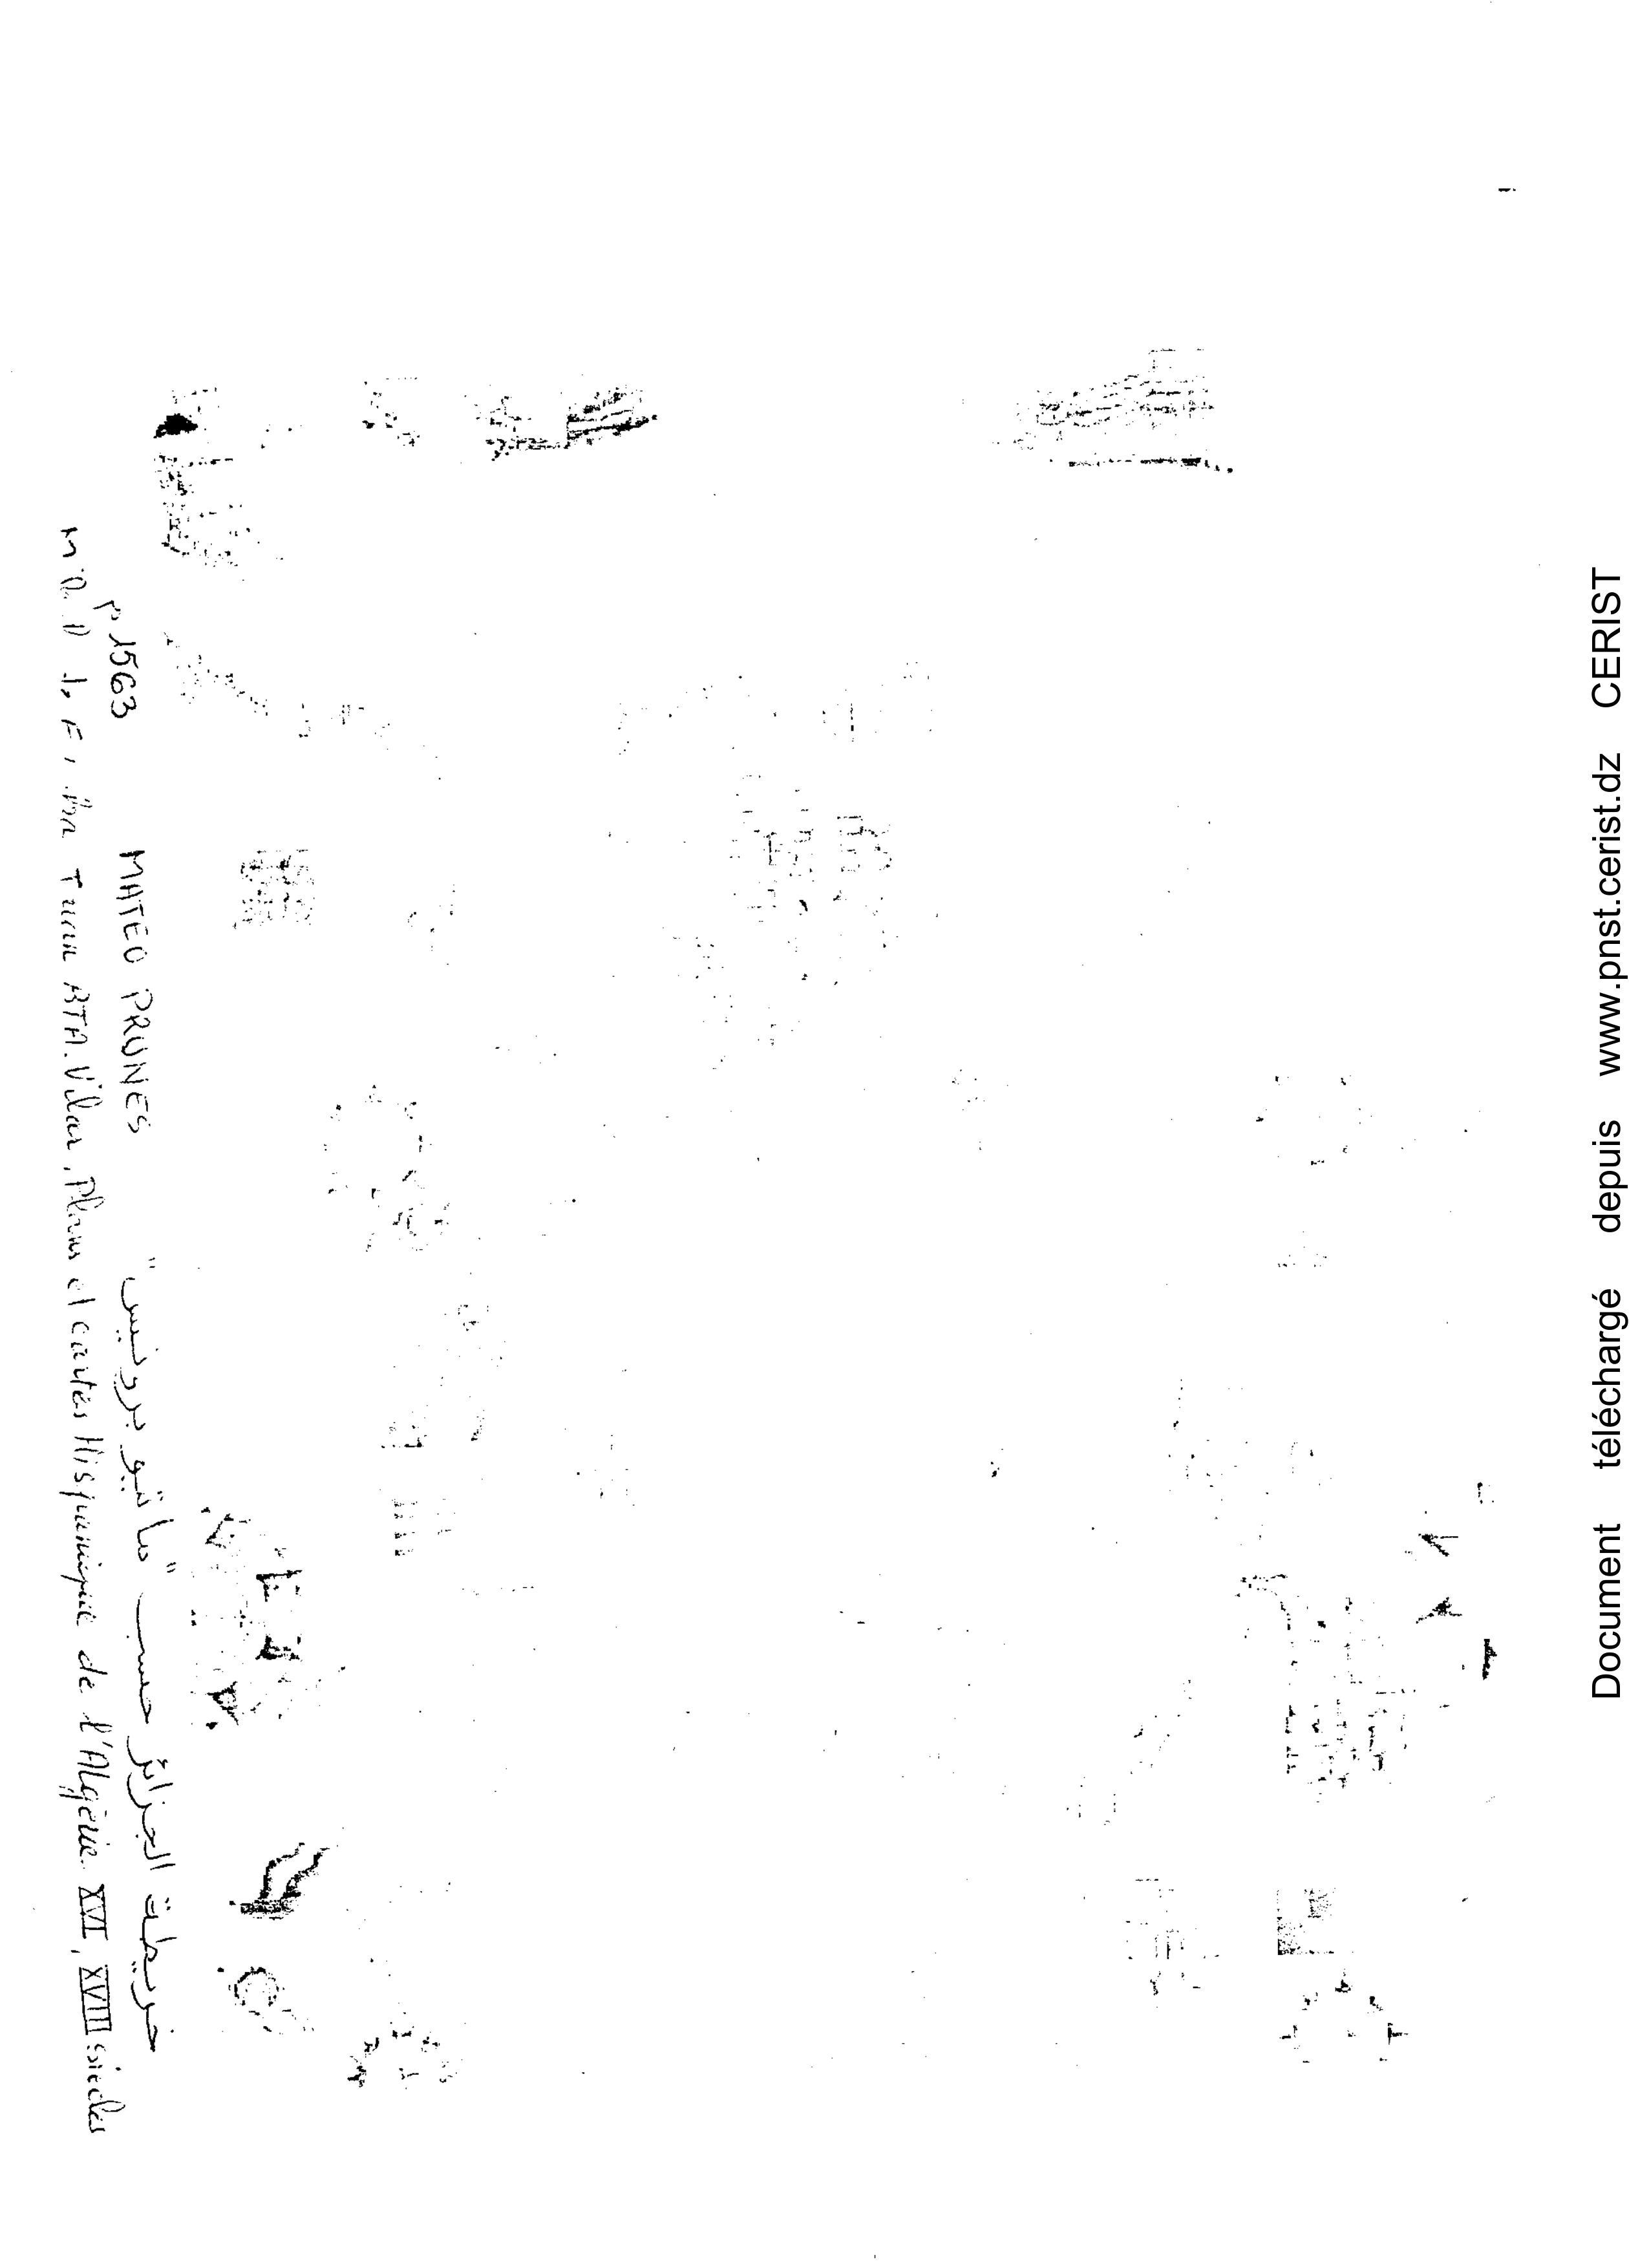 خريطة الجزائر حسب "ماتيو برونيس" MATEO PRUNES
1563
Vilar, Plans et cartes Hispanique de l'Algérie. XVI, XVIII siècles
Document téléchargé depuis www.pnst.cerist.dz CERIST